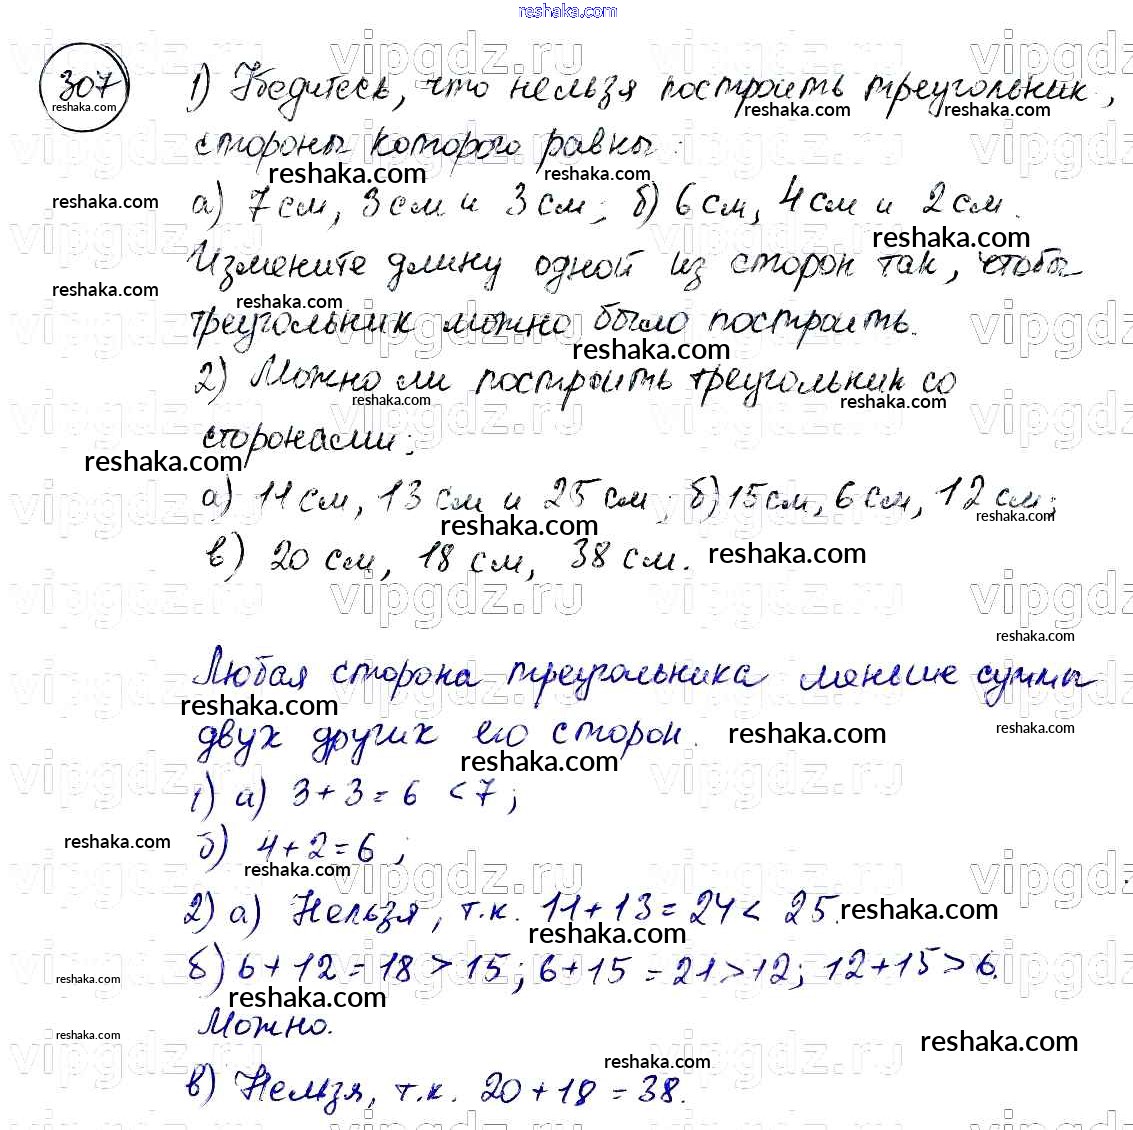 reshaka.com
307
1) Убедитесь, что нельзя построить треугольник,
стороны которого равны:
а) 7 см, 3 см и 3 см; б) 6 см, 4 см и 2 см.
Измените длину одной из сторон так, чтобы
треугольник можно было построить.
2) Можно ли построить треугольник со
сторонами:
а) 11 см, 13 см и 25 см; б) 15 см, 6 см, 12 см;
в) 20 см, 18 см, 38 см.
Любая сторона треугольника меньше суммы
двух других его сторон.
1) а) 3 + 3 = 6 < 7;
б) 4 + 2 = 6;
2) а) Нельзя, т.к. 11 + 13 = 24 < 25.
б) 6 + 12 = 18 > 15; 6 + 15 = 21 > 12; 12 + 15 > 6.
Можно.
в) Нельзя, т.к. 20 + 18 = 38.